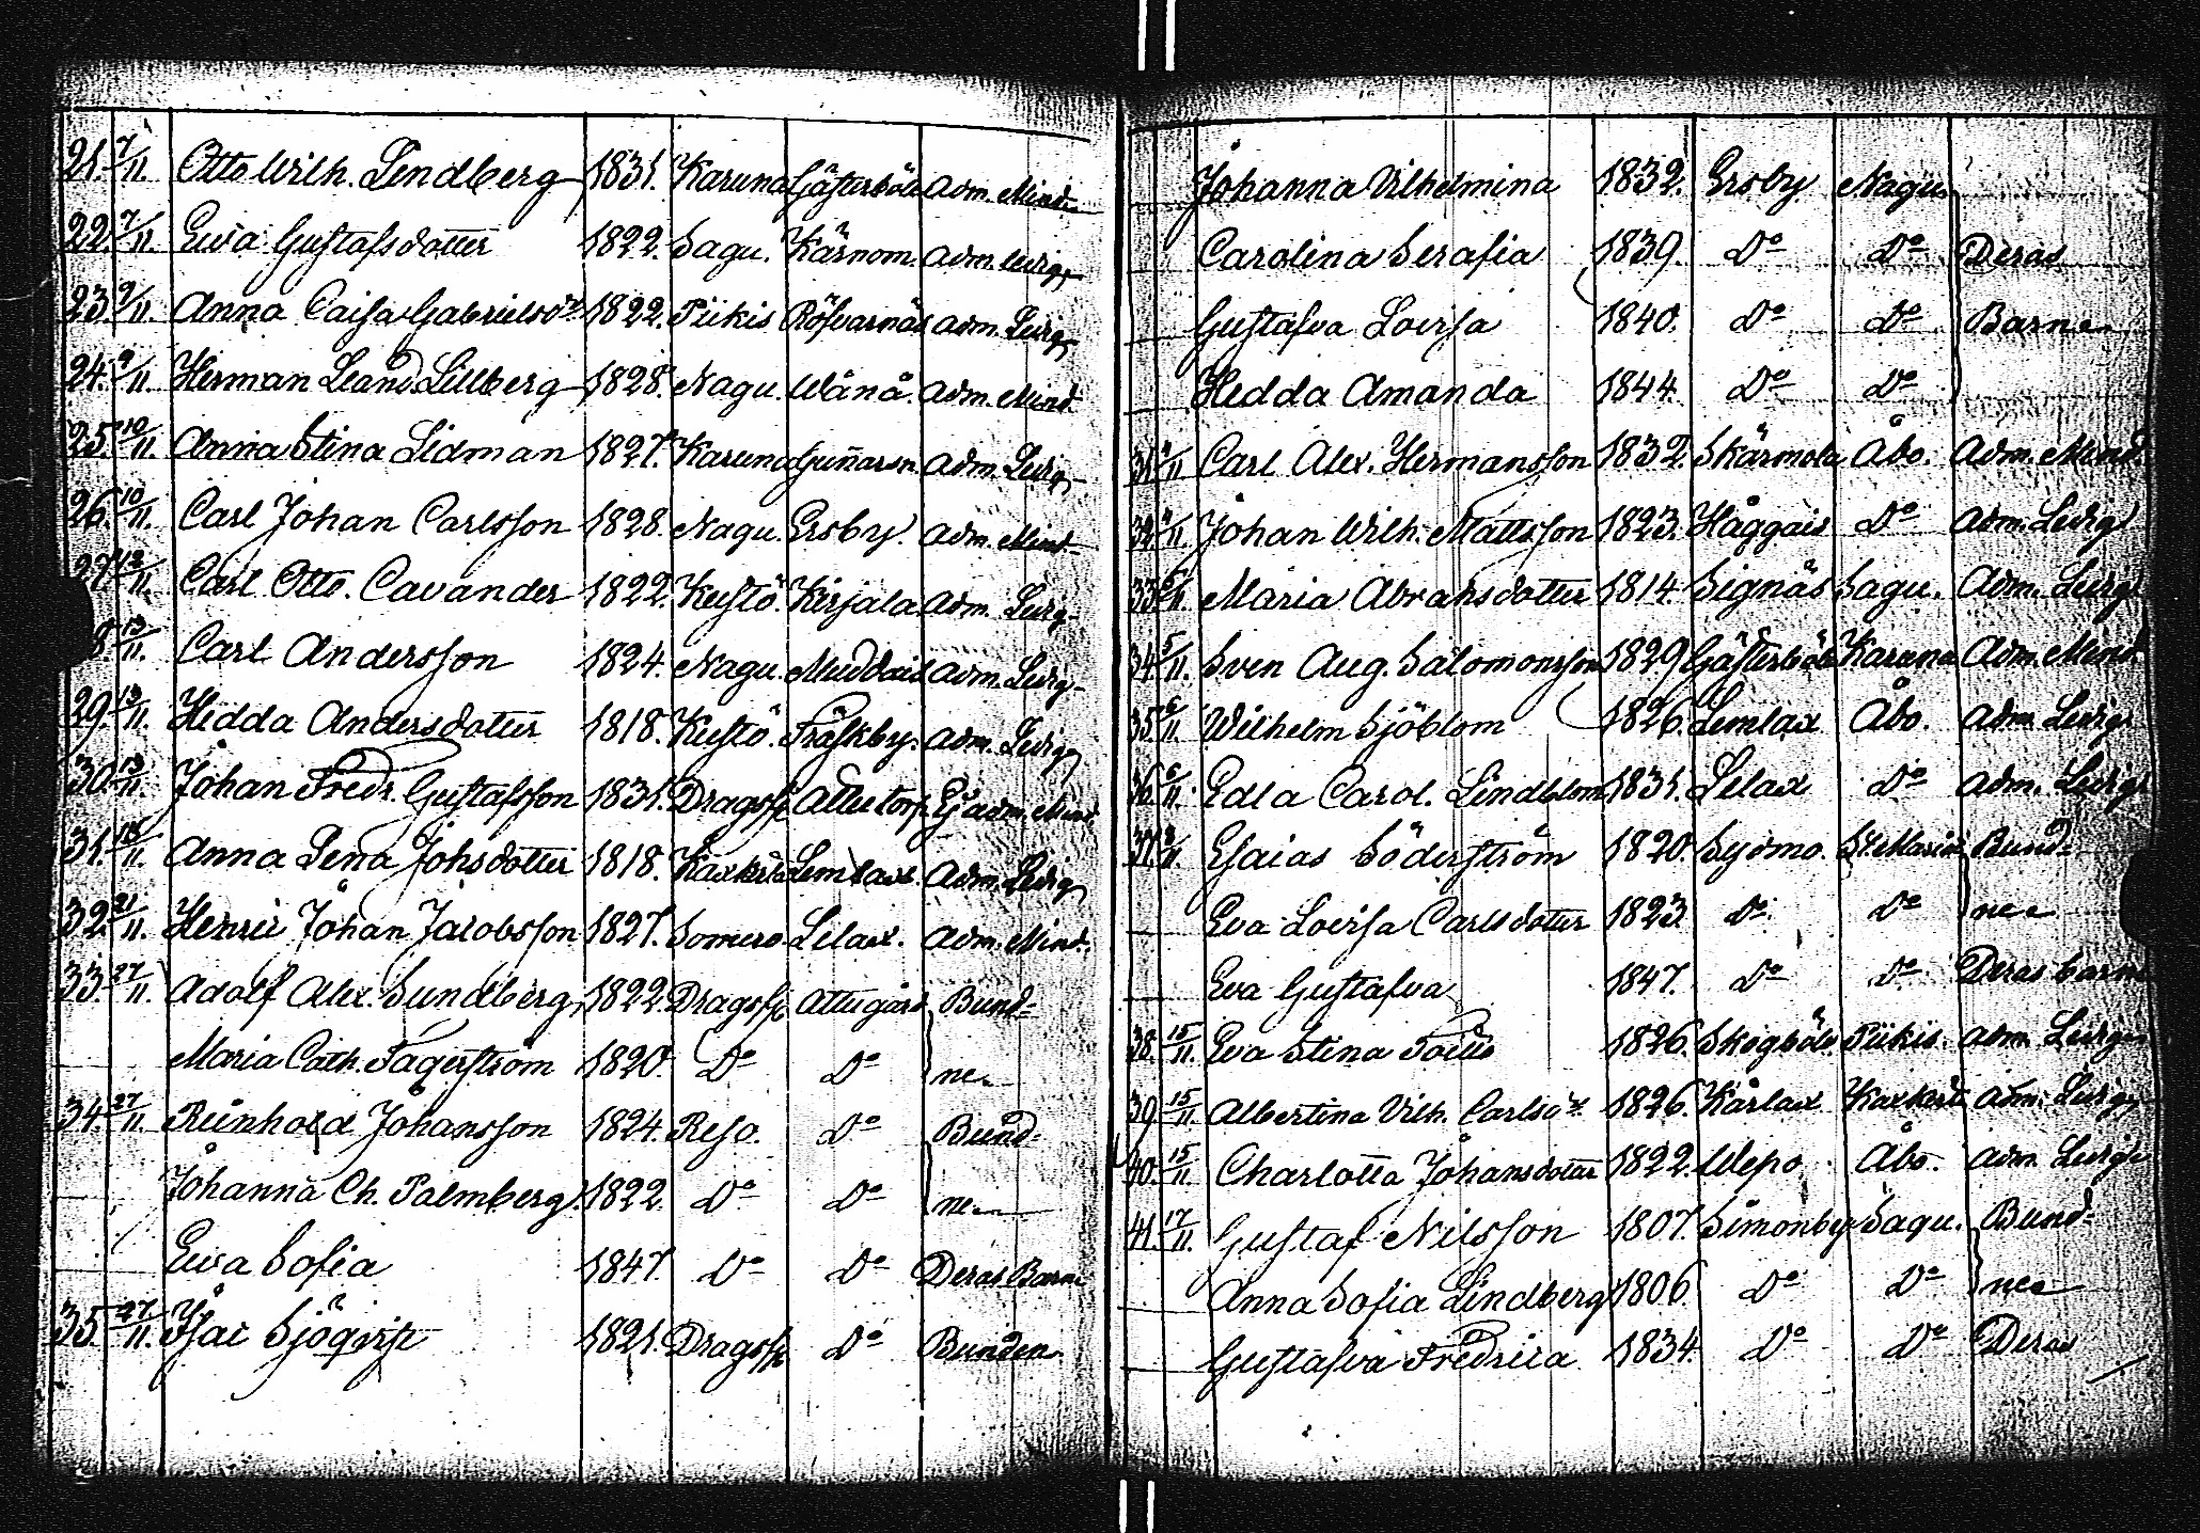 21. 7/11. Otto Wilh. Lindberg 1831. Karuna Gästerböle Adm. Mind.
22. 7/11. Ewa Gustafsdotter 1822. Sagu. Kärnom. Adm. Ledig
23. 9/11. Anna Caisa Gabrielsdr 1822. Piikis Röfvarnäs Adm. Ledig
24. 9/11. Herman Leand. Lillberg 1828. Nagu. Wånå. Adm. Mind.
25. 10/11. Anna Stina Lidman 1827. Karuna Gunnarsn. Adm. Ledig
26. 10/11. Carl Johan Carlsson 1828. Nagu. Ersby. Adm. Mind.
27. 13/11. Carl Otto. Cavander 1822. Kustö. Kirjala Adm. Ledig
8. 13/11. Carl Andersson 1824. Nagu. Muddais Adm. Ledig
29. 13/11. Hedda Andersdotter 1818. Kustö. Träskby. Adm. Ledig
30. 13/11. Johan Fredr. Gustafsson 1831. Dragsfj. Attu torp. Ej adm. Mind.
31. 18/11. Anna Lena Johsdotter 1818. Kaxkerta Lemlax. Adm. Ledig
32. 21/11. Henric Johan Jacobsson 1827. Somero. Lelax. Adm. Mind.
33. 27/11. Adolf Alex. Sundberg, 1822. Dragsfj. Attu gård Bund.
Maria Cath. Fagerström 1820. Do Do ne
34. 27/11. Reinhold Johansson 1824. Reso. Do Bund.
Johanna Ch. Palmberg. 1822. Do Do ne
Ewa Sofia 1847. Do Do Deras Barn
35. 27/11. Isac Sjöqvist 1821. Dragsfj. Do Bunden
Johanna Vilhelmina 1832. Ersby. Nagu.
Carolina Serafia 1839. Do Do Deras
Gustafva Lovisa 1840. Do Do Barn
Hedda Amanda 1844. Do Do
31. /11 Carl Alex. Hermansson 1832. Skärmola Åbo. Adm. Mind.
32. /11. Johan Wilh. Mattsson 1823. Håggais Do Adm. Ledig
33. /11. Maria Abrahsdotter 1814. Signäs Sagu. Adm. Ledig
34. 5/11. Sven Aug. Salomonsson 1829. Gästerböle Karuna Adm. Mind.
35. 6/11. Wilhelm Sjöblom 1826. Lemlax Åbo. Adm. Ledig
36. 6/11. Edla Carol. Lindblom 1831. Lelax Do Adm. Ledig
37. /11. Esaias Söderström 1820. Sydmo. St Marie Bund.
Eva Lovisa Carlsdotter 1823. Do Do ne
Eva Gustafva 1847. Do Do Deras barn
38. 15/11. Eva Stina 1826. Skogböle. Piikis. Adm. Ledig
39. 15/11. Albertina Vilh. Carlsdr 1826. Kårlax Kaxkerta Adm. Ledig
40. 15/11. Charlotta Johansdotter 1822. Uepo Åbo. Adm. Ledig
41. 17/11. Gustaf Nilsson 1807. Simonby Sagu. Bund.
Anna Sofia Lindberg 1806. Do Do ne
Gustafva Fredrica 1834. Do Do Deras